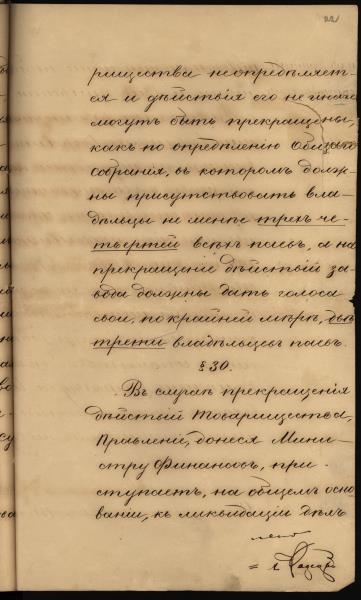 рищества неопредѣляет-
ся и дѣйствія его не иначе
могутъ быть прекращены,
какъ по опредѣленію Общаго
собранія, въ которомъ долж-
ны присутствовать вла-
дѣльцы не менѣе трехъ че-
твертей всѣхъ паевъ, а на
прекращеніе дѣйствій за-
вода должны дать голоса
свои, по крайней мѣрѣ, двѣ
трети владѣльцевъ паевъ.
§ 30.
Въ случаѣ прекращенія
дѣйствій Товарищества,
Правленіе, донеся Мини-
стру Финансовъ, при-
ступаетъ, на общемъ осно-
ваніи, къ ликвидаціи дѣлъ